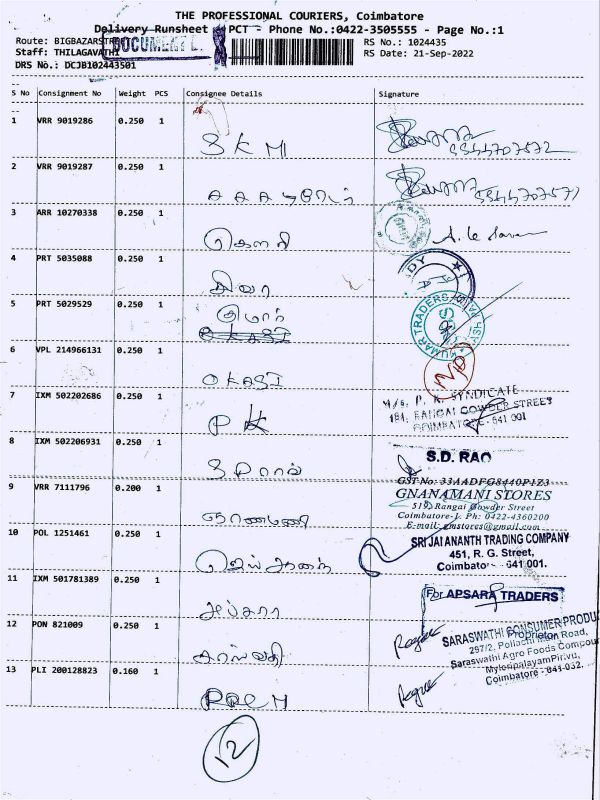 THE PROFESSIONAL COURIERS, Coimbatore
Delivery Runsheet PCT - Phone No.:0422-3505555 - Page No.:1
Route: BIGBAZARSTREET DOCUMENT RS No.: 1024435
Staff: THILAGAVATHI RS Date: 21-Sep-2022
DRS No.: DCJB102443501
S No Consignment No Weight PCS Consignee Details Signature
1 VRR 9019286 0.250 1 SKM 9344707572
2 VRR 9019287 0.250 1
3 ARR 10270338 0.250 1 கௌரி
4 PRT 5035088 0.250 1 சிவா
5 PRT 5029529 0.250 1 குமார் KUMAR TRADERS
OKASI
6 VPL 214966131 0.250 1 OKASI
7 IXM 502202686 0.250 1 PK M/s. P. K. SYNDICATE
184, RANGAI GOWDER STREET
COIMBATORE - 641 001
8 IXM 502206931 0.250 1 S.D. RAO
9 VRR 7111796 0.200 1 ஞானமணி GST No: 33AADFG8440P1Z3
GNANAMANI STORES
519, Rangai Gowder Street
Coimbatore-1. Ph: 0422-4360200
E-mail: gmstores@gmail.com
10 POL 1251461 0.250 1 ஜெய்ஆனந் SRI JAI ANANTH TRADING COMPANY
451, R. G. Street,
Coimbatore - 641 001.
11 IXM 501781389 0.250 1 அப்சரா For APSARA TRADERS
Proprietor
12 PON 821009 0.250 1 சரஸ்வதி SARASWATHI CONSUMER PRODU
297/2, Pollachi Main Road,
Saraswathi Agro Foods Compou
Myleripalayam Pirivu,
Coimbatore - 641 032.
13 PLI 200128823 0.160 1
12